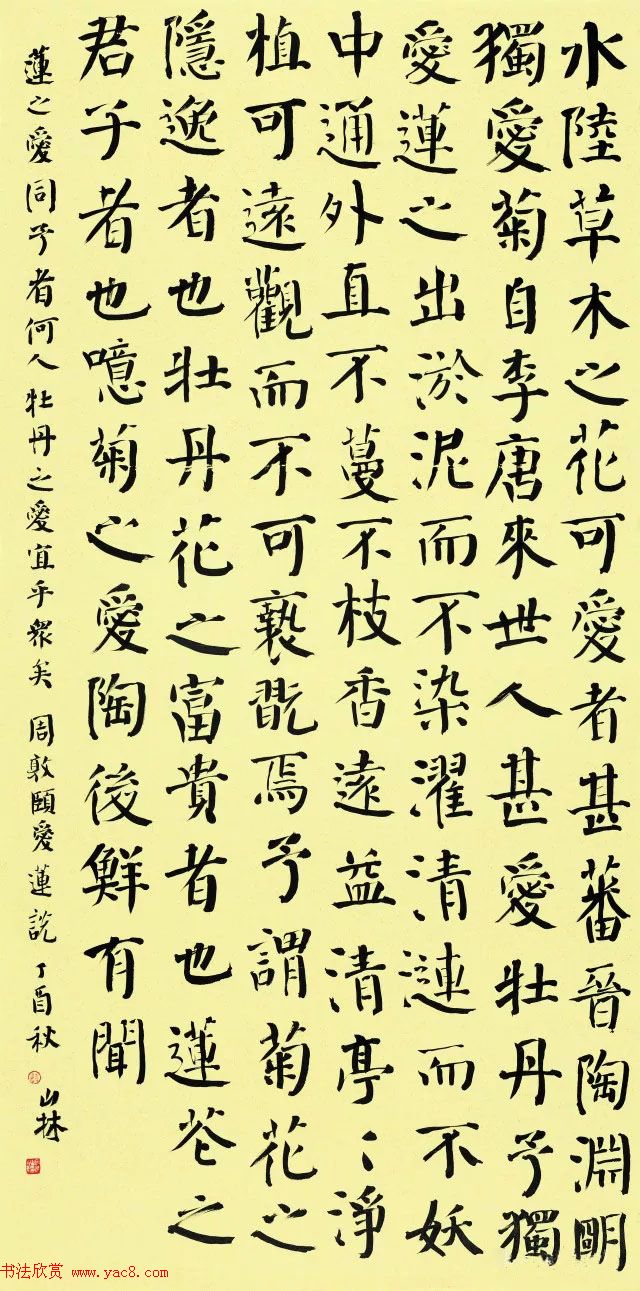 水陸草木之花可愛者甚蕃晉陶淵明
獨愛菊自李唐來世人甚愛牡丹予獨
愛蓮之出淤泥而不染濯清漣而不妖
中通外直不蔓不枝香遠益清亭〻淨
植可遠觀而不可褻翫焉予謂菊花之
隱逸者也牡丹花之富貴者也蓮花之
君子者也噫菊之愛陶後鮮有聞
蓮之愛同予者何人牡丹之愛宜乎衆矣 周敦頤愛蓮説 丁酉秋 山林
书法欣赏 www.yac8.com